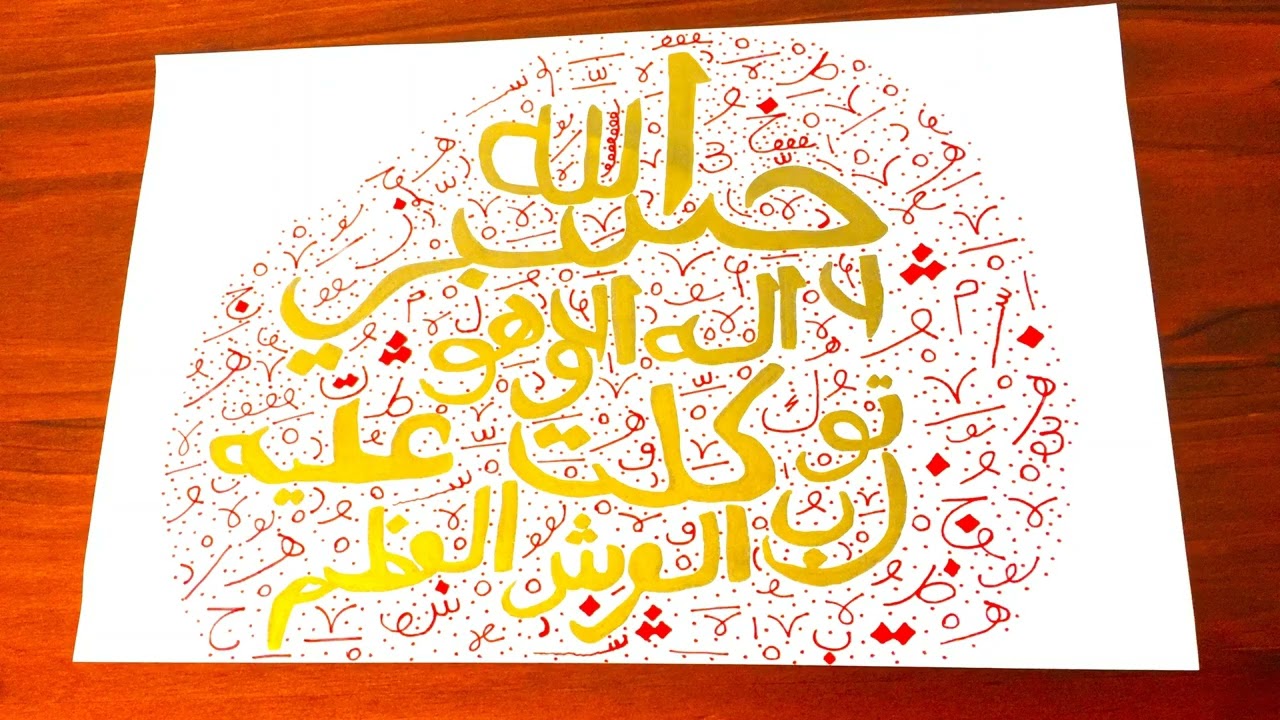 حسبي الله
لا اله الا هو
توكلت عليه
رب العرش العظيم